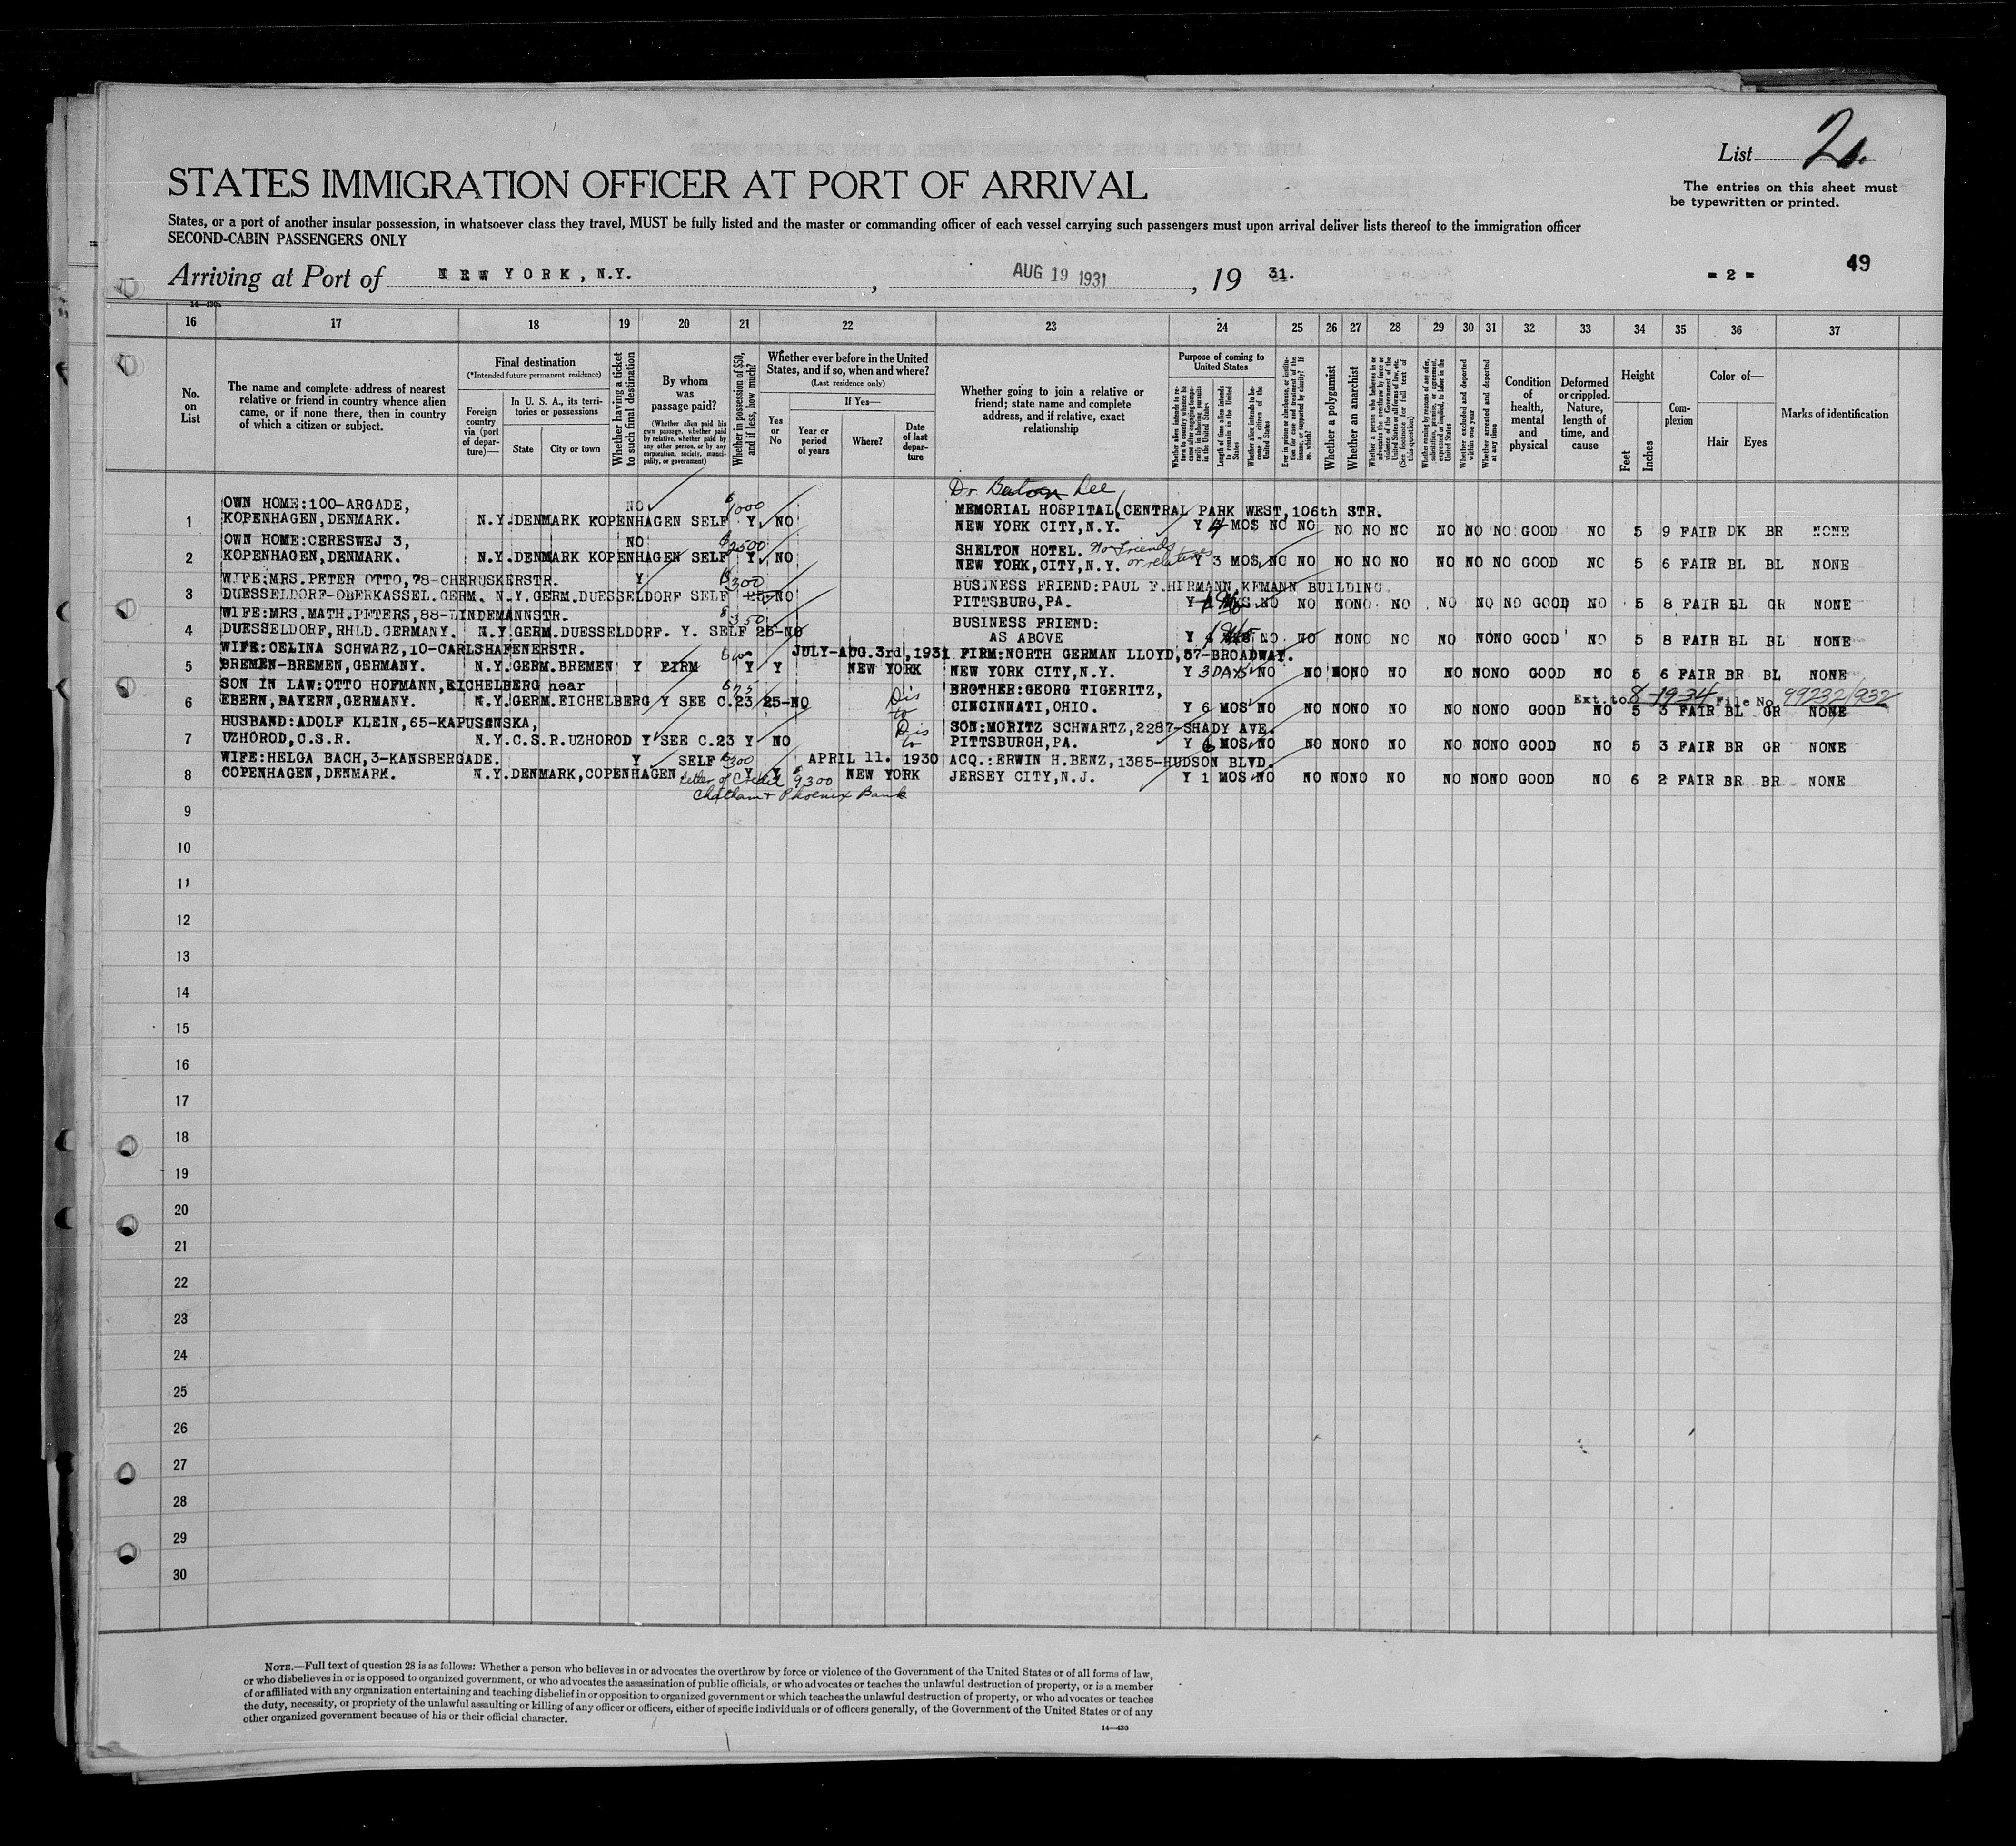 List 2.
STATES IMMIGRATION OFFICER AT PORT OF ARRIVAL
The entries on this sheet must
be typewritten or printed.
States, or a port of another insular possession, in whatsoever class they travel, MUST be fully listed and the master or commanding officer of each vessel carrying such passengers must upon arrival deliver lists thereof to the immigration officer
SECOND-CABIN PASSENGERS ONLY
Arriving at Port of NEW YORK, N.Y., AUG 19 1931, 19 31.
- 2 -
49
16 17 18 19 20 21 22 23 24 25 26 27 28 29 30 31 32 33 34 35 36 37
No. on List
The name and complete address of nearest
relative or friend in country whence alien
came, or if none there, then in country
of which a citizen or subject.
Final destination
(*Intended future permanent residence)
Foreign country via (port of departure)—
In U. S. A., its territories or possessions
State
City or town
Whether having a ticket to such final destination
By whom was passage paid?
(Whether alien paid his own passage, whether paid by relative, whether paid by any other person, or by any corporation, society, municipality, or government)
Whether in possession of $50, and if less, how much?
Whether ever before in the United
States, and if so, when and where?
(Last residence only)
Yes or No
If Yes—
Year or period of years
Where?
Date of last departure
Whether going to join a relative or
friend; state name and complete
address, and if relative, exact
relationship
Purpose of coming to
United States
Whether a polygamist
Whether an anarchist
Whether excluded and deported within one year
Whether arrested and deported at any time
Condition of health, mental and physical
Deformed or crippled. Nature, length of time, and cause
Height
Feet
Inches
Complexion
Color of—
Hair
Eyes
Marks of identification
Dr. Lee
OWN HOME:100-ARGADE, NO $1000 MEMORIAL HOSPITAL, CENTRAL PARK WEST,106th STR.
1 KOPENHAGEN,DENMARK. N.Y.DENMARK KOPENHAGEN SELF Y NO NEW YORK CITY,N.Y. Y 4 MOS NO NO NO NO NO NO NO NO GOOD NO 5 9 FAIR DK BR NONE
OWN HOME:CERESWEJ 3, NO $2500 SHELTON HOTEL. No friends
2 KOPENHAGEN,DENMARK. N.Y.DENMARK KOPENHAGEN SELF Y NO NEW YORK,CITY,N.Y. or relatives Y 3 MOS NO NO NO NO NO NO NO NO GOOD NO 5 6 FAIR BL BL NONE
WIFE:MRS.PETER OTTO,78-CHERUSKERSTR. Y $300 BUSINESS FRIEND:PAUL F.HERMANN, BUILDING
3 DUESSELDORF-OBERKASSEL.GERM. N.Y.GERM.DUESSELDORF SELF 25-NO PITTSBURG,PA. Y NO NO NONO NO NO NO NO GOOD NO 5 8 FAIR BL GR NONE
WIFE:MRS.MATH.PETERS,88-LINDEMANNSTR. $350 BUSINESS FRIEND:
4 DUESSELDORF,RHLD.GERMANY. N.Y.GERM.DUESSELDORF. Y. SELF 25-NO AS ABOVE Y NO NO NONO NO NO NONO GOOD NO 5 8 FAIR BL BL NONE
WIFE:CELINA SCHWARZ,10-CARLSHAFENERSTR. JULY-AUG.3rd,1931 FIRM:NORTH GERMAN LLOYD,57-BROADWAY.
5 BREMEN-BREMEN,GERMANY. N.Y.GERM.BREMEN Y FIRM Y Y NEW YORK NEW YORK CITY,N.Y. Y 3DAYS NO NO NONO NO NO NONO GOOD NO 5 6 FAIR BR BL NONE
SON IN LAW:OTTO HOFMANN,EICHELBERG near $75 Dis BROTHER:GEORG TIGERITZ, Ext.to 8-19-34 File No. 99232/932
6 EBERN,BAYERN,GERMANY. N.Y.GERM.EICHELBERG Y SEE C.23 25-NO to CINCINNATI,OHIO. Y 6 MOS NO NO NONO NO NO NONO GOOD NO 5 3 FAIR BL GR NONE
HUSBAND:ADOLF KLEIN,65-KAPUSANSKA, Dis SON:MORITZ SCHWARTZ,2287-SHADY AVE.
7 UZHOROD,C.S.R. N.Y.C.S.R.UZHOROD Y SEE C.23 Y NO to PITTSBURGH,PA. Y 6 MOS NO NO NONO NO NO NONO GOOD NO 5 3 FAIR BR GR NONE
WIFE:HELGA BACH,3-KANSBERGADE. Y SELF $300 APRIL 11. 1930 ACQ.:ERWIN H.BENZ,1385-HUDSON BLVD.
8 COPENHAGEN,DENMARK. N.Y.DENMARK,COPENHAGEN Letter of Credit Y Y $9300 NEW YORK JERSEY CITY,N.J. Y 1 MOS NO NO NONO NO NO NONO GOOD NO 6 2 FAIR BR BR NONE
Chatham & Phoenix Bank
9
10
11
12
13
14
15
16
17
18
19
20
21
22
23
24
25
26
27
28
29
30
NOTE.—Full text of question 28 is as follows: Whether a person who believes in or advocates the overthrow by force or violence of the Government of the United States or of all forms of law,
or who disbelieves in or is opposed to organized government, or who advocates the assassination of public officials, or who advocates or teaches the unlawful destruction of property, or is a member
of or affiliated with any organization entertaining and teaching disbelief in or opposition to organized government or which teaches the unlawful destruction of property, or who advocates or teaches
the duty, necessity, or propriety of the unlawful assaulting or killing of any officer or officers, either of specific individuals or of officers generally, of the Government of the United States or of any
other organized government because of his or their official character.
14—430